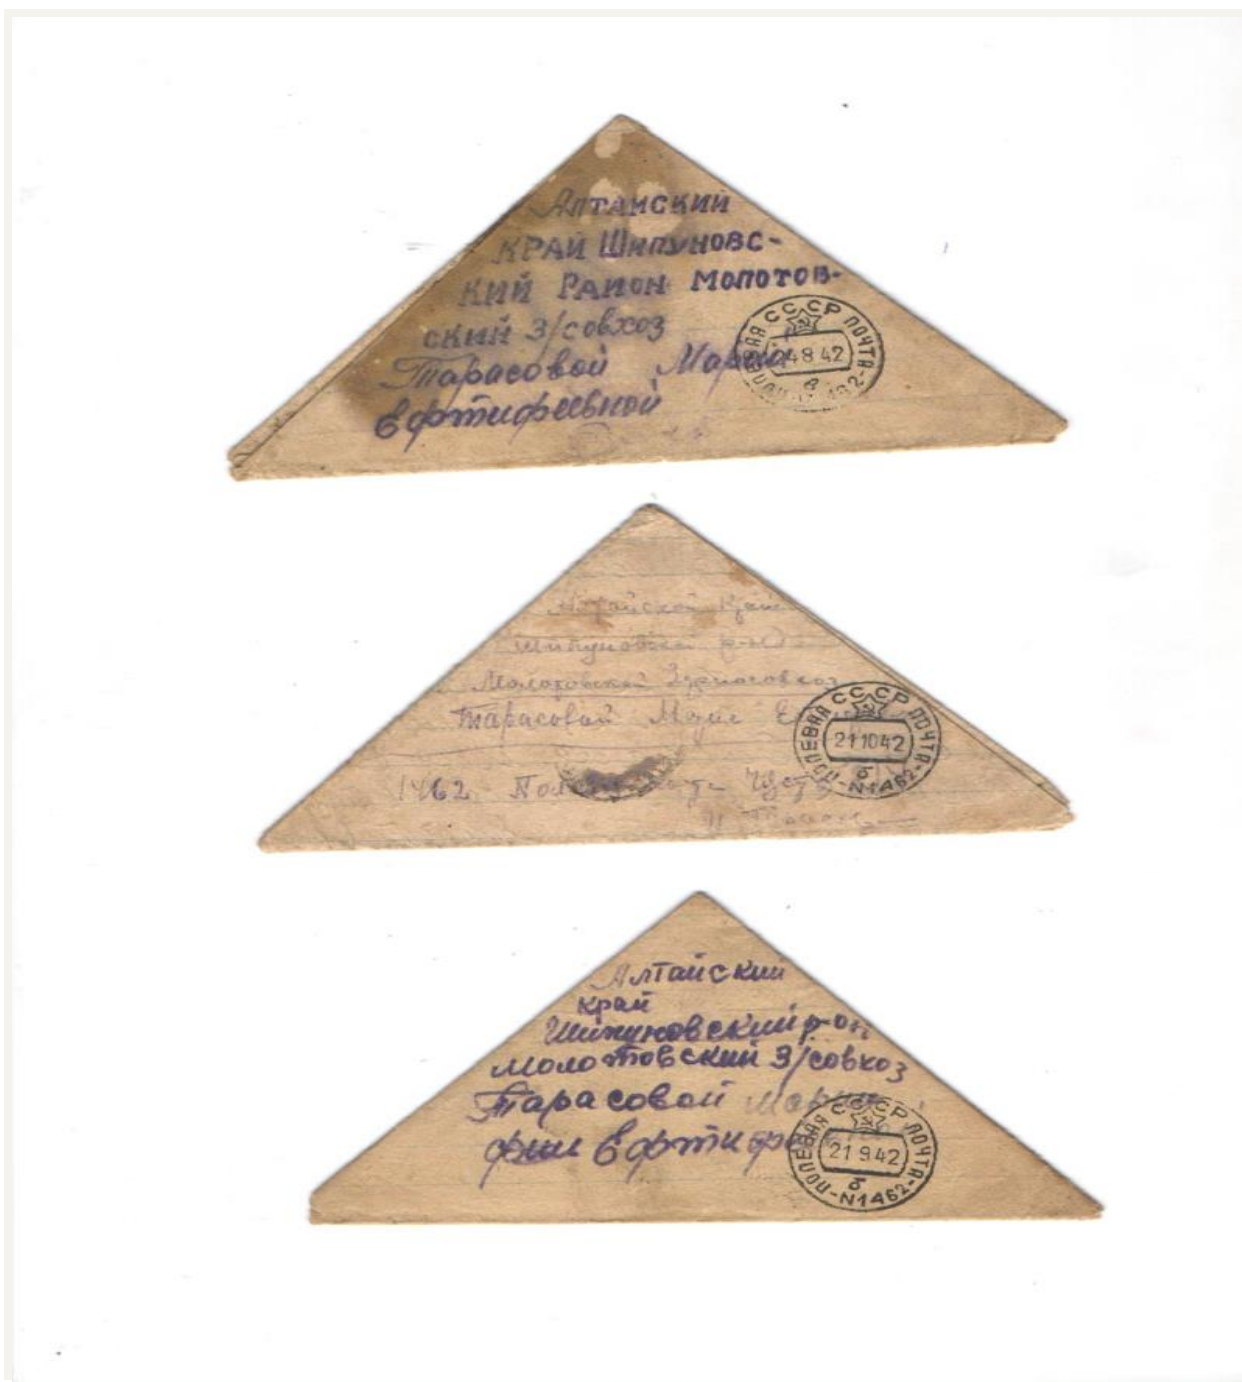 Алтайский
КРАЙ ШИПУНОВС-
КИЙ РАЙОН МОЛОТОВ-
СКИЙ З/совхоз
Тарасовой Марии
Ефтифеевной
ПОЛЕВАЯ СССР ПОЧТА
4 8 42
Алтайской Край
Шипуновский р-н
Молотовской Зерносовхоз
Тарасовой
1462
ПОЛЕВАЯ СССР ПОЧТА
21 10 42
б
N1462
Алтайский
край
Шипуновский р-он
Молотовский З/совхоз
Тарасовой
ПОЛЕВАЯ СССР ПОЧТА
21 9 42
б
N1462